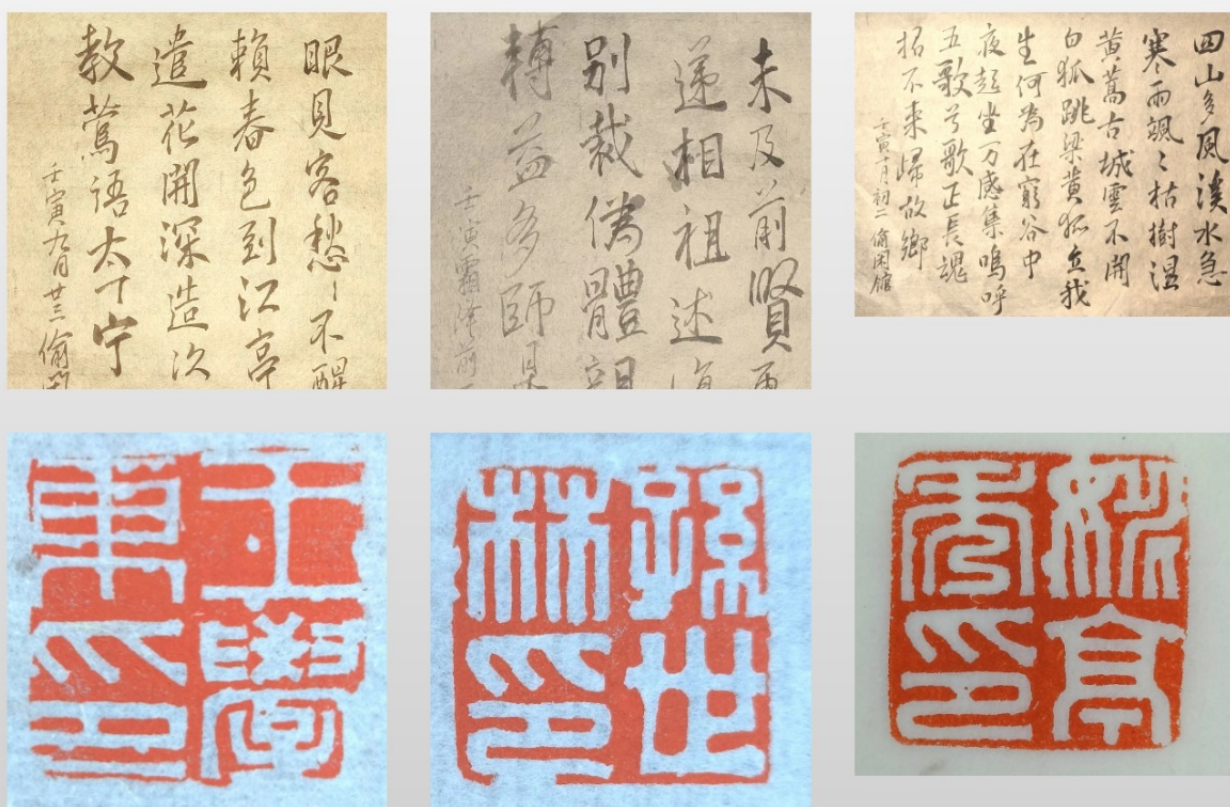 眼見客愁〻不醒
賴春色到江亭
遣花開深造次
教鶯語太丁宁
壬寅九月廿三 偷閑
未及前賢更
遞相祖述復
別裁偽體親
轉益多師是
壬寅霜降前
四山多風溪水急
寒雨颯〻枯樹濕
黃蒿古城雲不開
白狐跳梁黃狐立我
生何為在窮谷中
夜起坐万感集嗚呼
五歌兮歌正長魂
招不来歸故鄉
壬寅十月初二 偷閑館
學
印
孫世
林印
亭
印